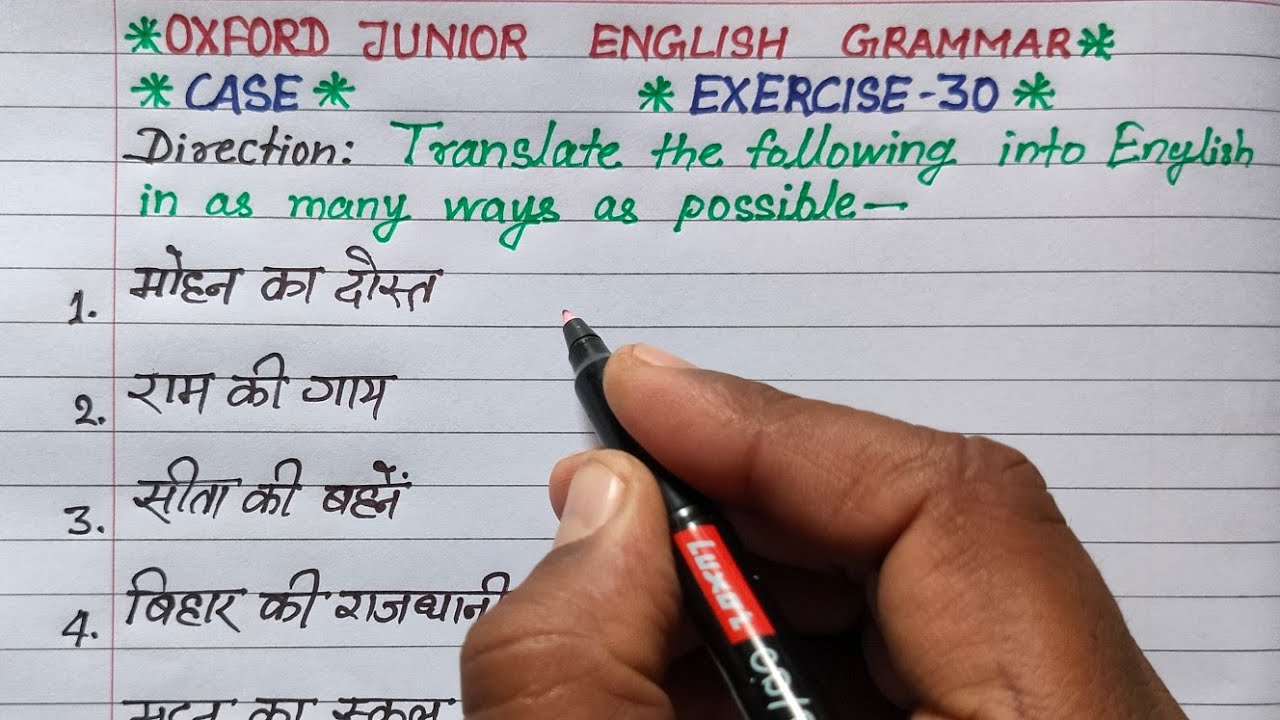 *OXFORD JUNIOR ENGLISH GRAMMAR*
*CASE* *EXERCISE-30*
Direction: Translate the following into English
in as many ways as possible—
1. मोहन का दोस्त
2. राम की गाय
3. सीता की बहनें
4. बिहार की राजधानी
का स्कूल
Luxor